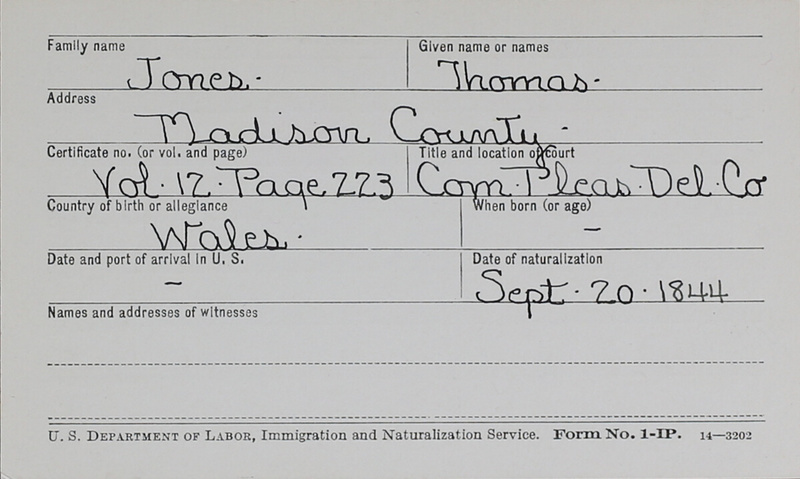 Family name Given name or names
Jones. Thomas.
Address
Madison County.
Certificate no. (or vol. and page) Title and location of court
Vol. 12. Page 223 Com. Pleas. Del. Co
Country of birth or allegiance When born (or age)
Wales. –
Date and port of arrival in U. S. Date of naturalization
– Sept. 20. 1844
Names and addresses of witnesses
U. S. DEPARTMENT OF LABOR, Immigration and Naturalization Service. Form No. 1-IP. 14—3202